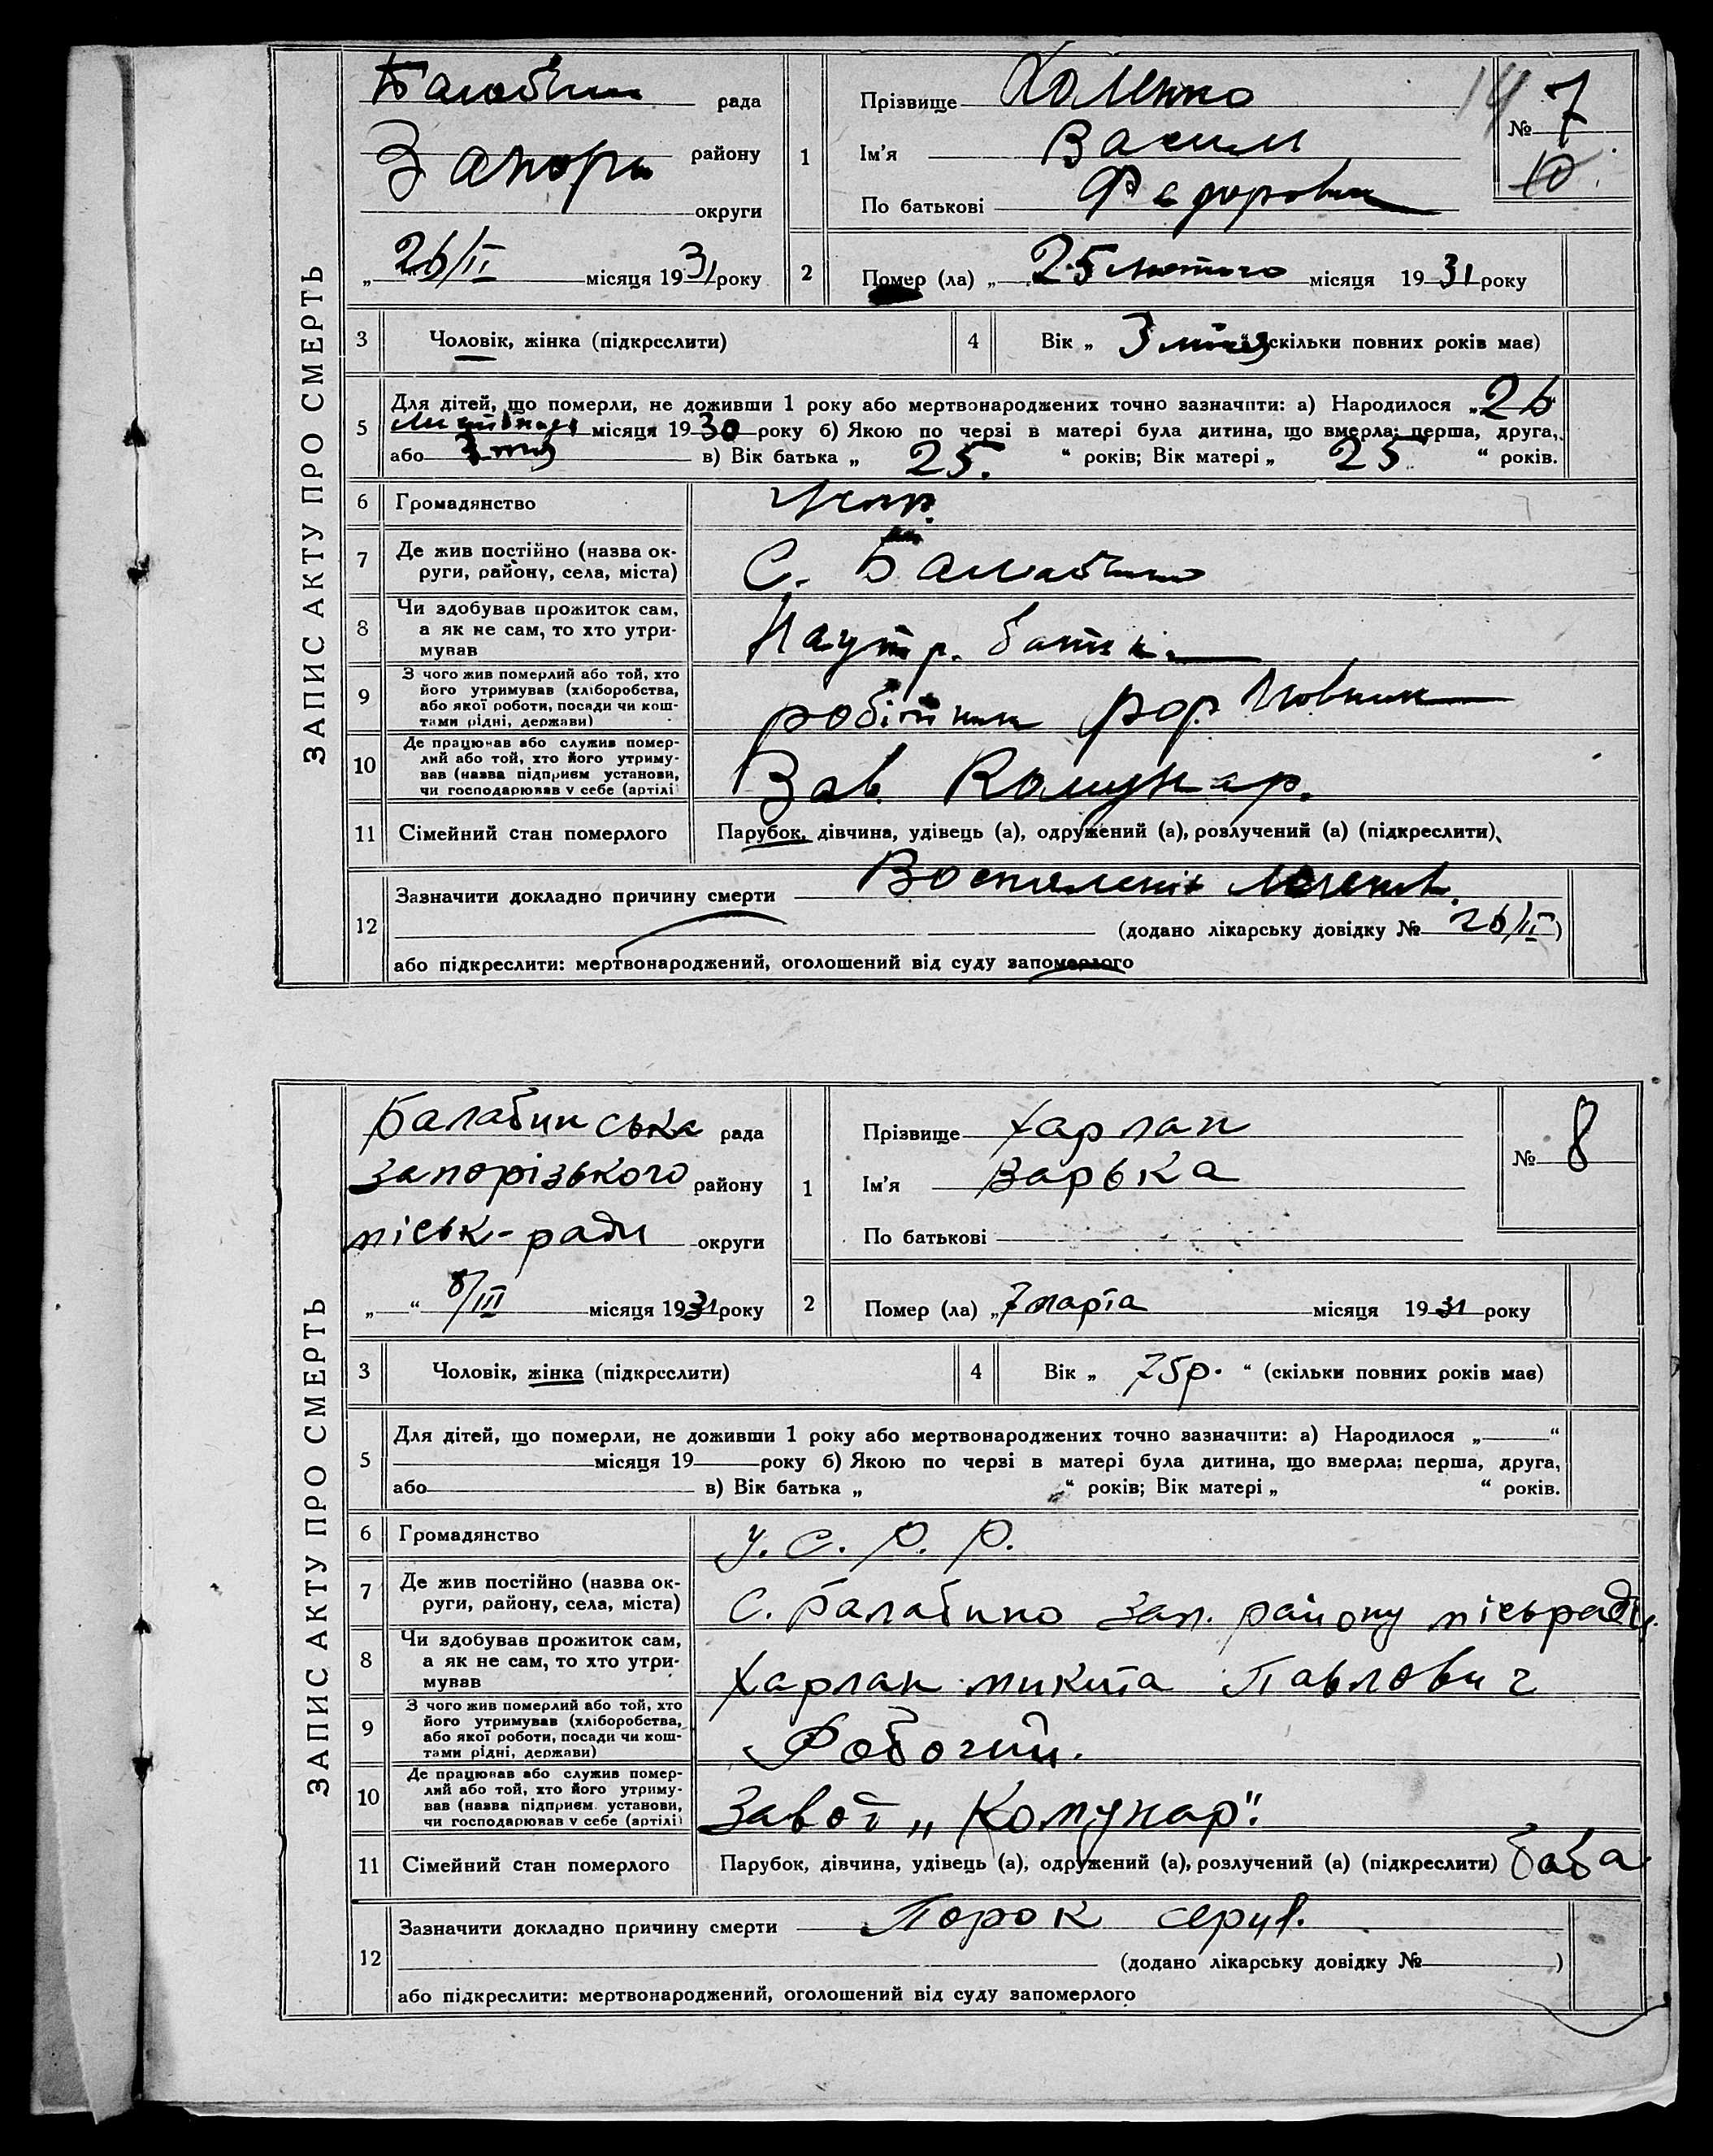 ЗАПИС АКТУ ПРО СМЕРТЬ
рада
Запор. району
округи
„ 26/II місяця 1931 року
1
Прізвище
Ім'я Васил
По батькові Федорович
№ 7
10
2
Помер (ла) „ 25 лютого місяця 1931 року
3
Чоловік, жінка (підкреслити)
4
Вік „ 3 скільки повних років має)
5
Для дітей, що померли, не доживши 1 року або мертвонароджених точно зазначити: а) Народилося „ 26
листопада місяця 1930 року б) Якою по черзі в матері була дитина, що вмерла: перша, друга,
або в) Вік батька „ 25. “ років; Вік матері „ 25 “ років.
6
Громадянство
7
Де жив постійно (назва ок-
руги, району, села, міста)
С. Балабино
8
Чи здобував прожиток сам,
а як не сам, то хто утри-
мував
На утр. батьк.
9
З чого жив померлий або той, хто
його утримував (хліборобства,
або якої роботи, посади чи кош-
тами рідні, держави)
робітник
10
Де працював або служив помер-
лий або той, хто його утриму-
вав (назва підприєм установи,
чи господарював у себе (артілі
Зав. Комунар.
11
Сімейний стан померлого
Парубок, дівчина, удівець (а), одружений (а), розлучений (а) (підкреслити)
12
Зазначити докладно причину смерти Воспаление легких.
(додано лікарську довідку № 26/II)
або підкреслити: мертвонароджений, оголошений від суду запомерлого
ЗАПИС АКТУ ПРО СМЕРТЬ
Балабинська рада
Запорізького району
міськ-ради округи
„ “ 8/III місяця 1931 року
1
Прізвище Харлан
Ім'я Варька
По батькові
№ 8
2
Помер (ла) „ 7 марта місяця 1931 року
3
Чоловік, жінка (підкреслити)
4
Вік „ 75р. “ (скільки повних років має)
5
Для дітей, що померли, не доживши 1 року або мертвонароджених точно зазначити: а) Народилося „ “
місяця 19 року б) Якою по черзі в матері була дитина, що вмерла: перша, друга,
або в) Вік батька „ “ років; Вік матері „ “ років.
6
Громадянство
У. С. Р. Р.
7
Де жив постійно (назва ок-
руги, району, села, міста)
С. Балабино Зап. району міськради.
8
Чи здобував прожиток сам,
а як не сам, то хто утри-
мував
Харлан Микита Павлович
9
З чого жив померлий або той, хто
його утримував (хліборобства,
або якої роботи, посади чи кош-
тами рідні, держави)
Робочий.
10
Де працював або служив помер-
лий або той, хто його утриму-
вав (назва підприєм. установи,
чи господарював у себе (артілі)
Завод „Комунар".
11
Сімейний стан померлого
Парубок, дівчина, удівець (а), одружений (а), розлучений (а) (підкреслити) баба
12
Зазначити докладно причину смерти Порок серця.
(додано лікарську довідку № )
або підкреслити: мертвонароджений, оголошений від суду запомерлого